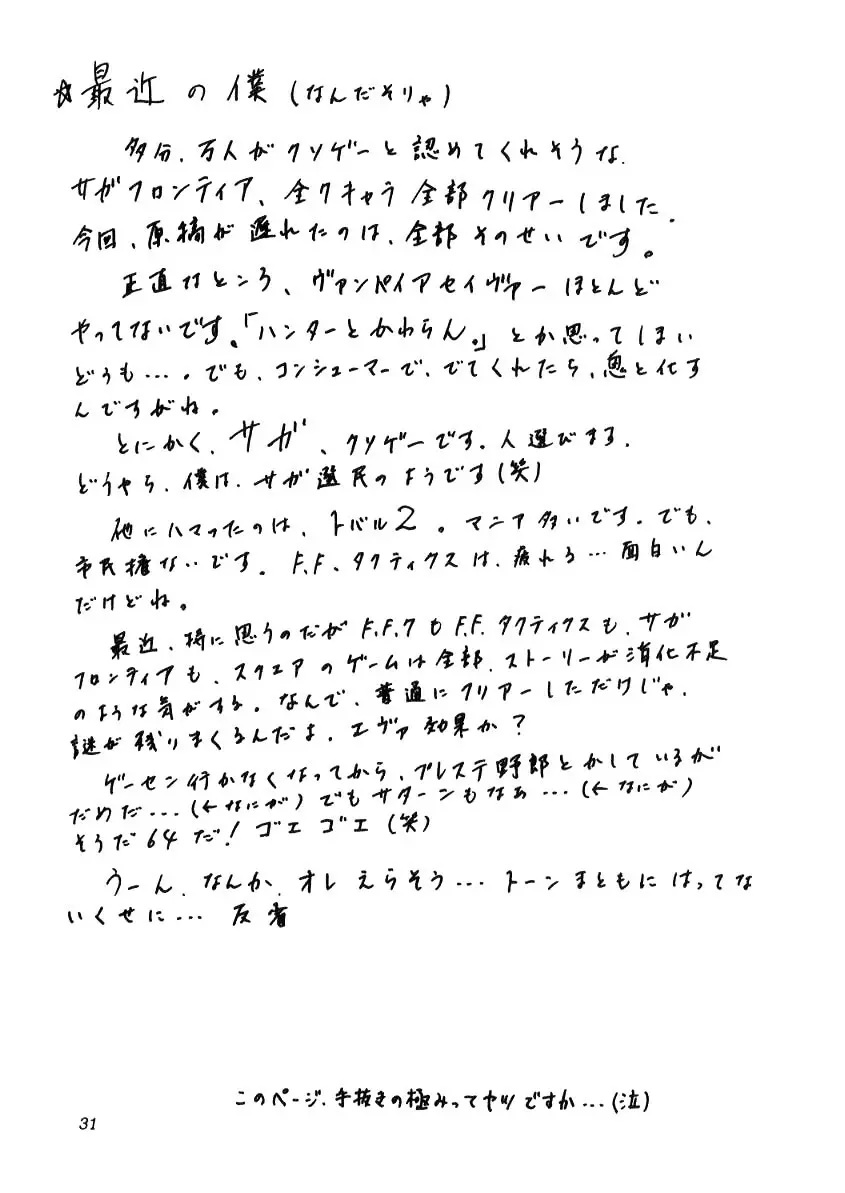 ☆最近の僕(なんだそりゃ)
多分、万人がクソゲーと認めてくれそうな、
サガフロンティア、全クキャラ全部クリアーしました。
今回、原稿が遅れたのは、全部そのせいです。
正直なところ、ヴァンパイアセイヴァーほとんど
やってないです。「ハンターとかわらん。」とか思ってしまい
どうも…。でも、コンシューマーで、でてくれたら、鬼と化す
んですがね。
とにかく、サガ、クソゲーです、人選びまる、
どうやら、僕は、サガ選民のようです(笑)
他にハマったのは、トバル2。マニア多いです。でも、
市民権ないです。F.F、タクティクスは、疲れる…面白いん
だけどね。
最近、特に思うのだがF.F.7もF.F.タクティクスも、サガ
フロンティアも、スクエアのゲームは全部、ストーリーが消化不足
のような気がする。なんで、普通にクリアーしただけじゃ、
謎が残りまくるんだよ、エヴァ効果か?
ゲーセン行かなくなってから、プレステ野郎とかしているが
だめだ…(←なにが)でもサターンもなぁ…(←なにが)
そうだ64だ!ゴエゴエ(笑)
うーん、なんか、オレえらそう…トーンまともにはってな
いくせに…反省
このページ、手抜きの極みってヤツですか…(泣)
31